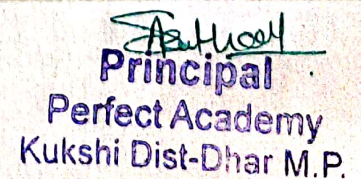 Principal
Perfect Academy
Kukshi Dist-Dhar M.P.